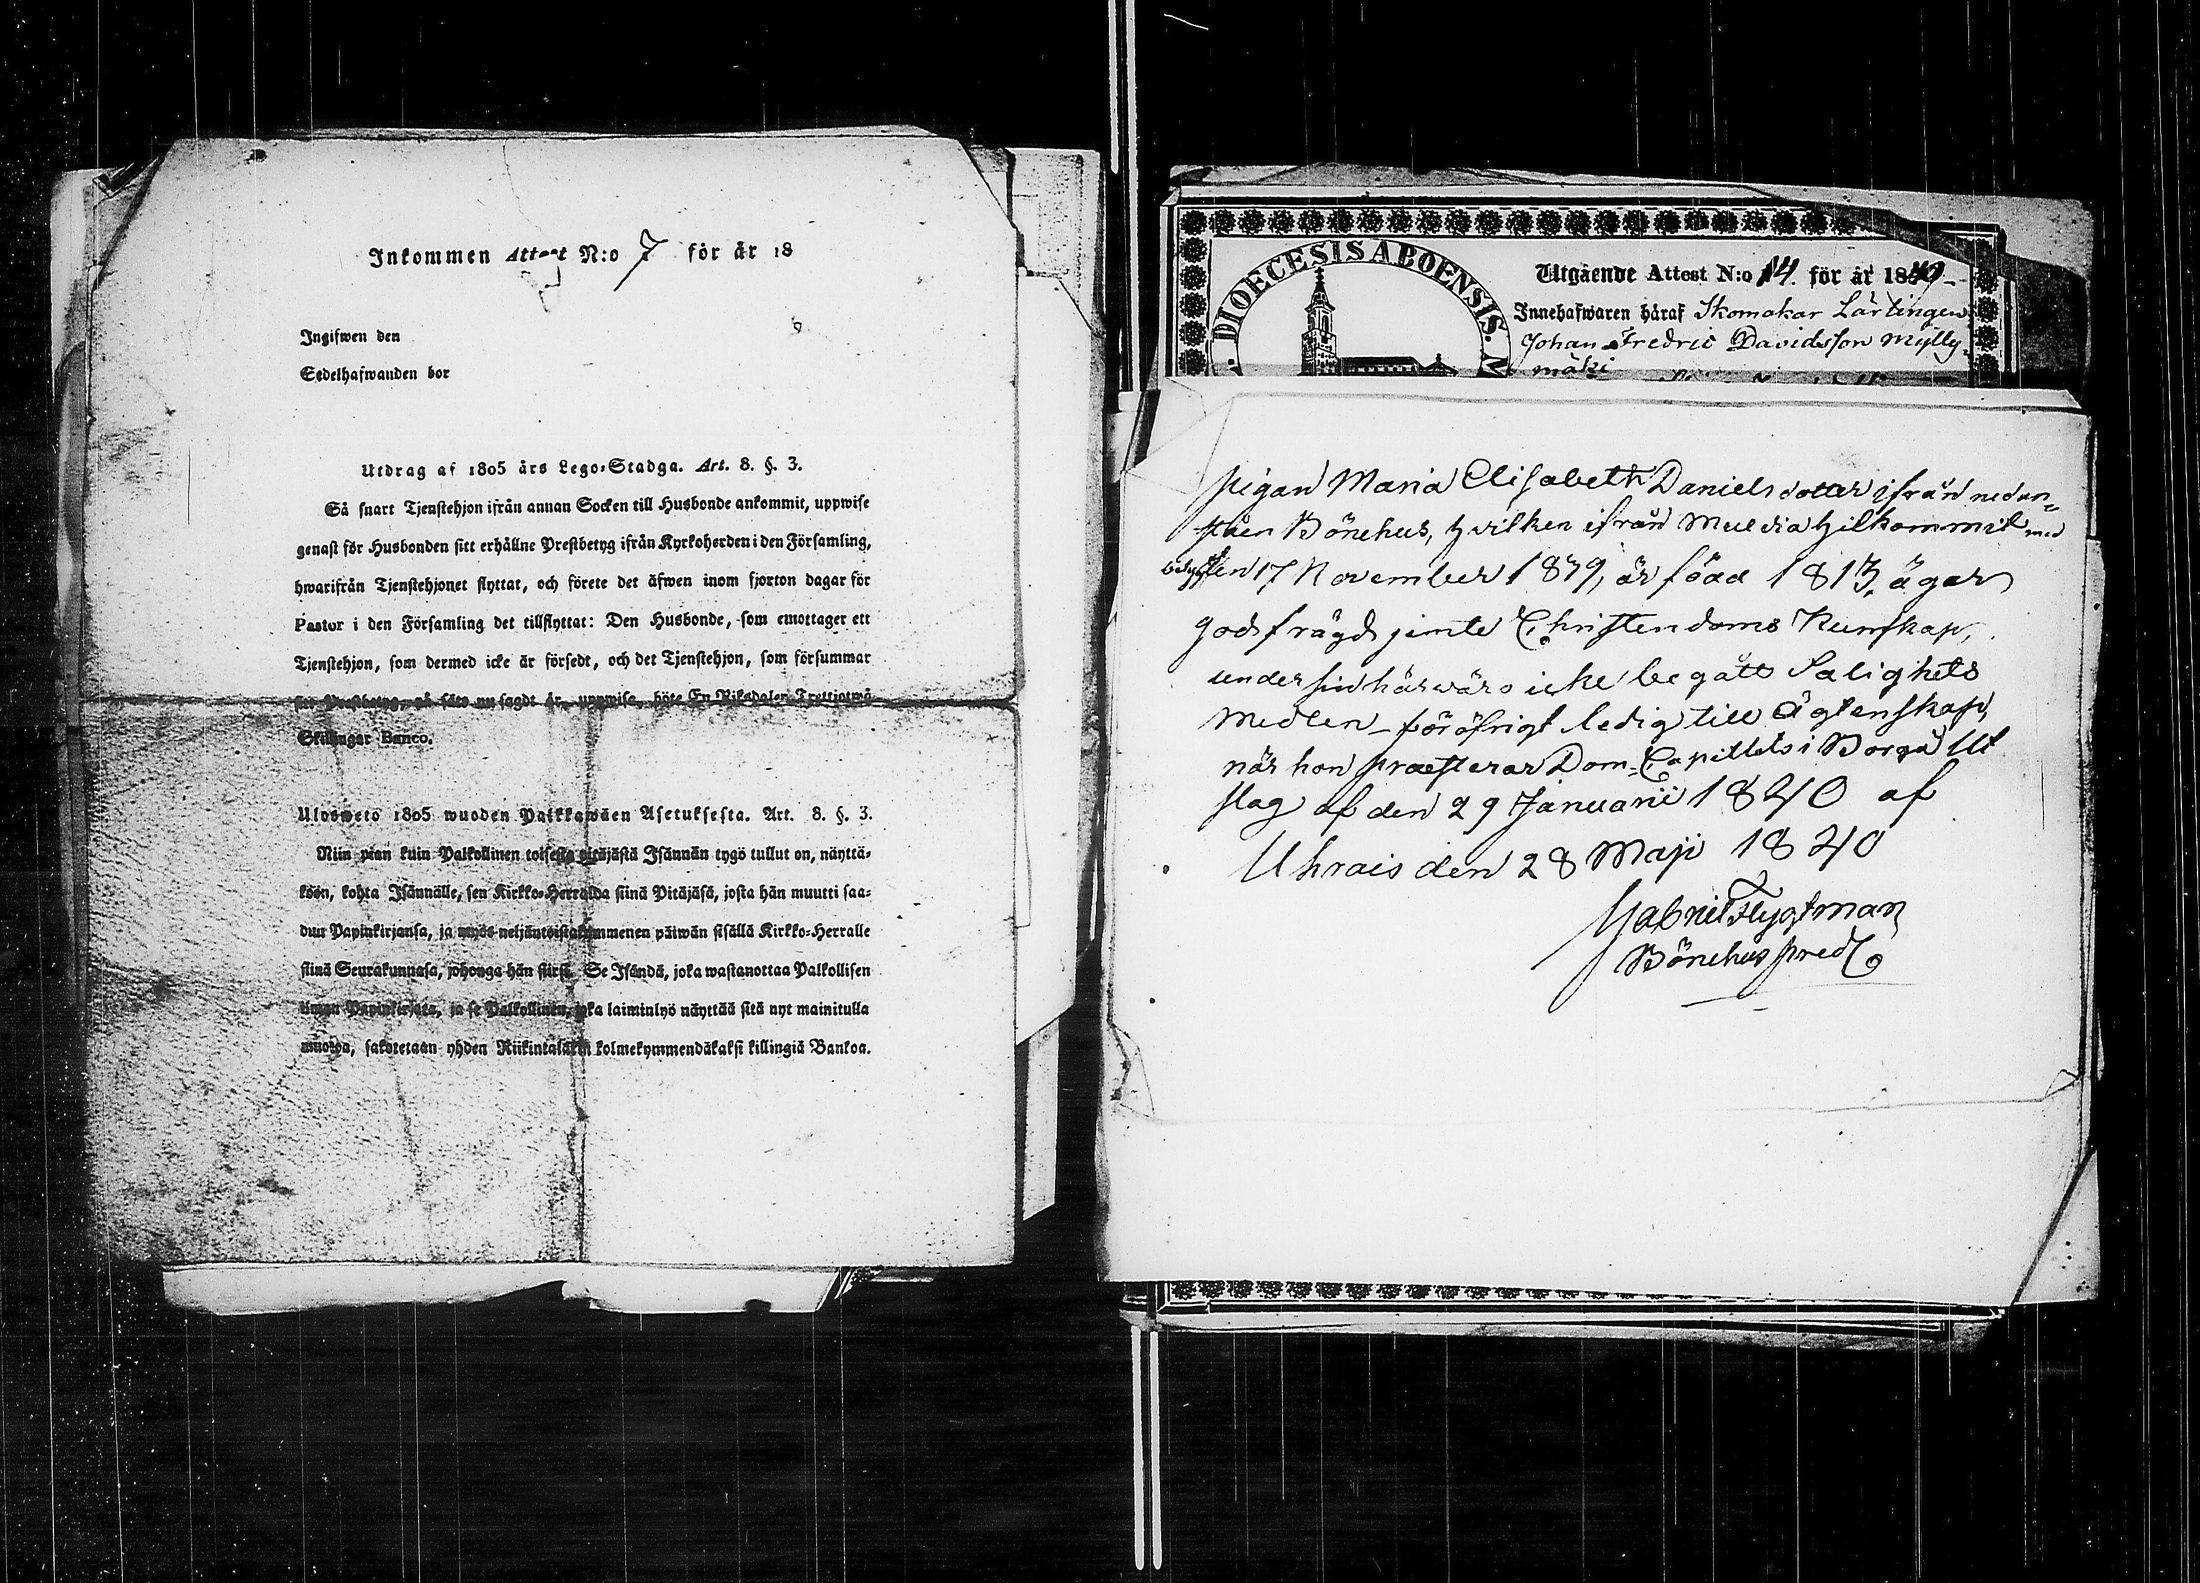 Inkommen Attest N:o 7 för år 18
Ingifwen den
Sedelhafwanden bor
Utdrag af 1805 års Lego-Stadga. Art. 8. §. 3.
Så snart Tjenstehjon ifrån annan Socken till Husbonde ankommit, uppwise
genast för Husbonden sitt erhållne Prestbetyg ifrån Kyrkoherden i den Församling,
hwarifrån Tjenstehjonet flyttat, och förete det äfwen inom fjorton dagar för
Pastor i den Församling det tillflyttat: Den Husbonde, som emottager ett
Tjenstehjon, som dermed icke är försedt, och det Tjenstehjon, som försummar
sitt Prestbetyg, på sätt nu sagdt är, uppwisa, böte En Riksdaler Trettiotwå
Skillingar Banco.
Ulosweto 1805 wuoden Palkkawäen Asetuksesta. Art. 8. §. 3.
Niin pian kuin Palkollinen toisesta pitäjästä Isännän tygö tullut on, näyttä-
köön, kohta Isännälle, sen Kirkko-Herralda siinä Pitäjäsä, josta hän muutti saa-
dun Papinkirjansa, ja myös neljäntoistakymmenen päiwän sisällä Kirkko-Herralle
siinä Seurakunnasa, johonga hän siirsi. Se Isändä, joka wastanottaa Palkollisen
ilman Papinkirjata, ja se Palkollinen, joka laiminlyö näyttää sitä nyt mainitulla
muotoa, sakotetaan yhden Riikintalarin kolmekymmendäkaksi killingiä Bankoa.
DIOECESIS ABOENSIS.
Utgående Attest N:o 14. för år 1840
Innehafwaren häraf Skomakar Lärlingen
Johan Fredric Davidsson Mylly-
mäki
pigan Maria Elisabeth Danielsdotter ifrån nedan-
Bönehus, hvilken ifrån Muldia hitkommit med
betyg den 17 November 1839, är född 1813, ägar
god frägd jemte Christendoms Kunskap,
under sin härwaro icke begått Salighets
Medlen - för öfrigt ledig till Ägtenskap,
när hon præsterar Dom-Capitlets i Borgå Ut
slag af den 29 Januarii 1840 af
Uhrais den 28 Maji 1840
Gabriel Flygtman
Bönehus pred